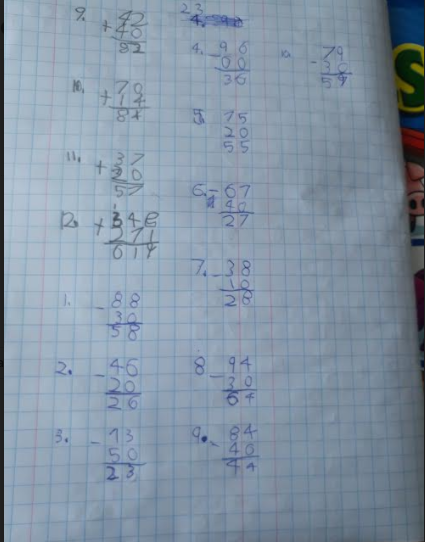 9. + 42
40
82
10. + 70
14
84
11. + 37
20
57
12. +
271
1. - 88
30
58
2. - 46
20
26
3. - 73
50
23
23
4. - 96
36
5. 75
20
55
6. - 67
40
27
7. - 38
10
28
8 - 94
30
64
9. - 84
40
44
- 79